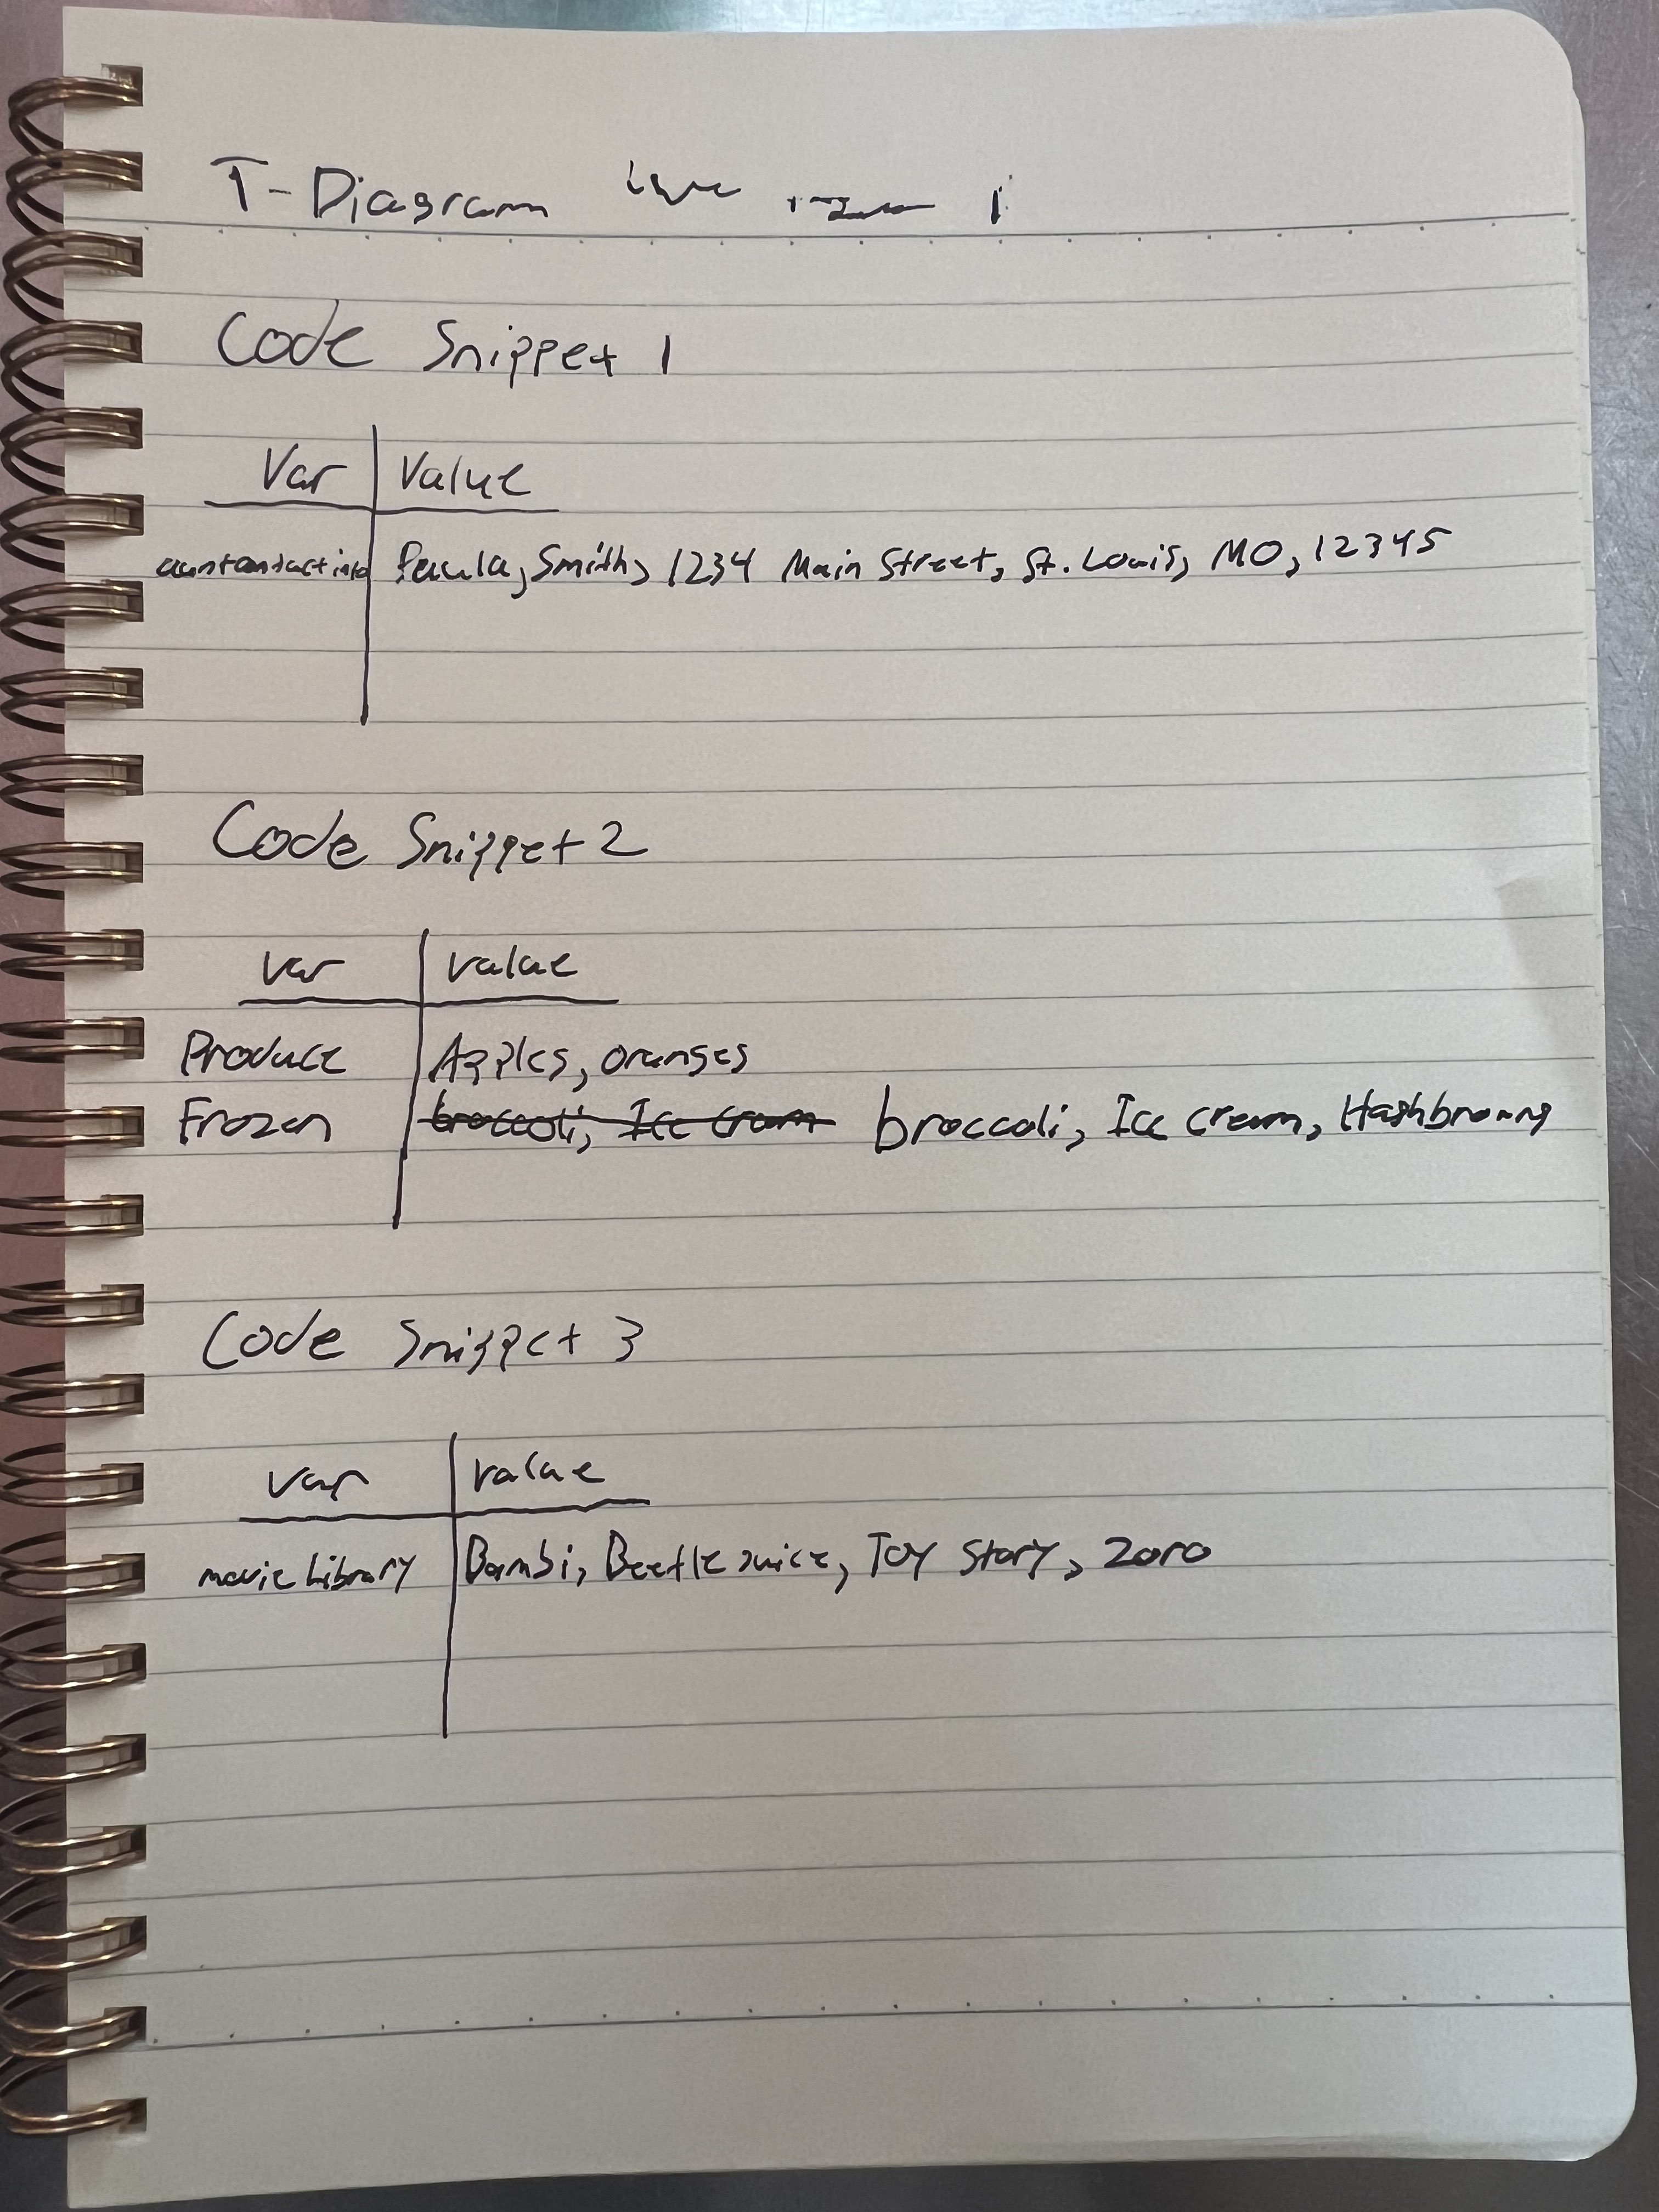 T-Diagram
Code Snippet 1
Var Value
Paula, Smith, 1234 Main Street, St. Louis, MO, 12345
Code Snippet 2
var value
Produce Apples, oranges
Frozen broccoli, Ice cream broccoli, Ice cream, Hashbrowns
Code Snippet 3
var value
movie Library Bambi, Beetle Juice, Toy Story, Zoro